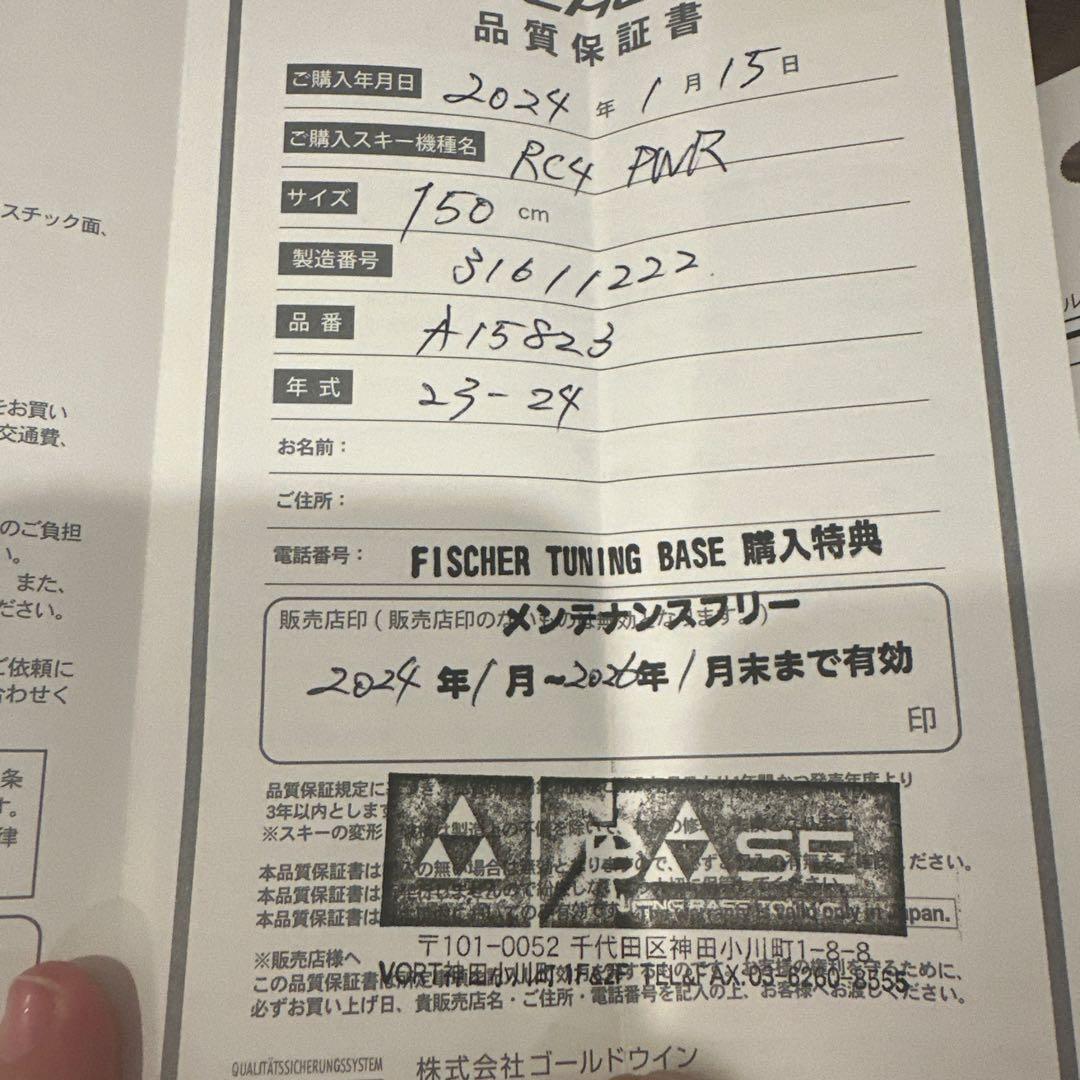 品質保証書
ご購入年月日 2024 年 1 月 15 日
ご購入スキー機種名 RC4 PWR
サイズ 150 cm
製造番号 31611222
品番 A15823
年式 23-24
お名前：
ご住所：
電話番号： FISCHER TUNING BASE 購入特典
メンテナンスフリー
販売店印(販売店印のないものは無効となります。)
2024 年 1 月~2026年 1 月末まで有効
印
品質保証規定に
3年以内とします
※スキーの変形
本品質保証書は
ください。
本品質保証書は
本品質保証書は
only in Japan.
BASE
〒101-0052 千代田区神田小川町1-8-8
※販売店様へ
VORT神田小川町1F&2F TEL&FAX.03-6260-8555
この品質保証書は
ために、
必ずお買い上げ日、貴販売店名・ご住所・電話番号を記入の上、お客様へお渡しください。
QUALITÄTSSICHERUNGSSYSTEM
株式会社ゴールドウイン
スチック面、
をお買い
交通費、
のご負担
い。
また、
ださい。
ご依頼に
合わせく
条
す。
律
ル